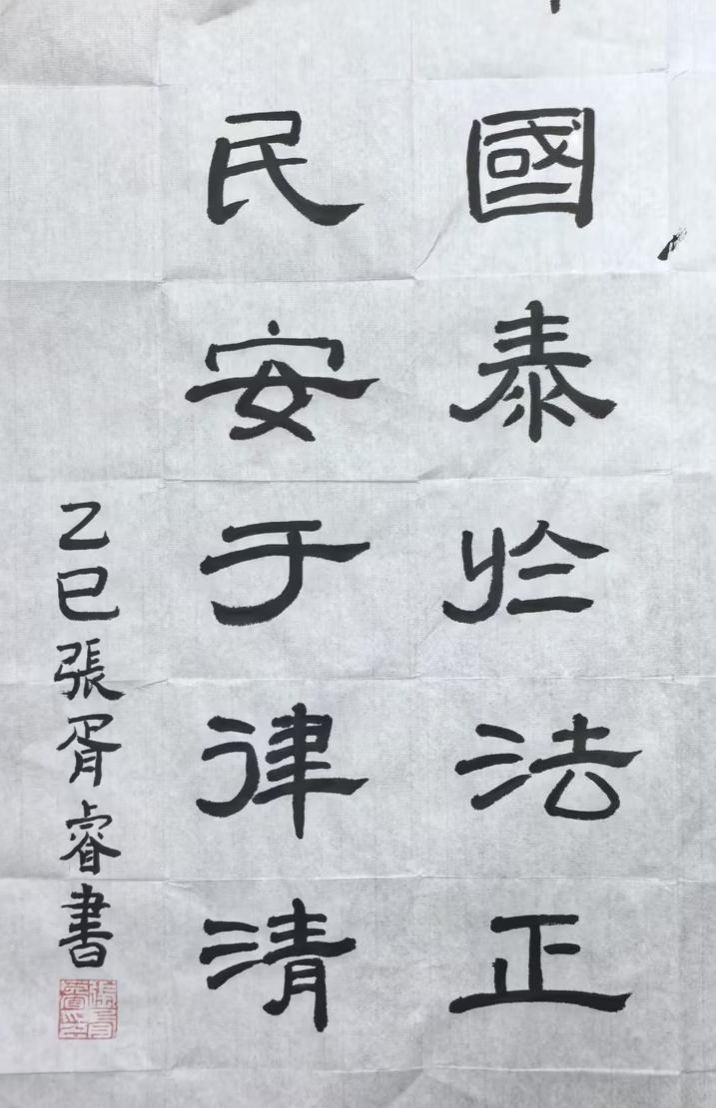 國泰於法正
民安于律清
乙巳張胥睿書